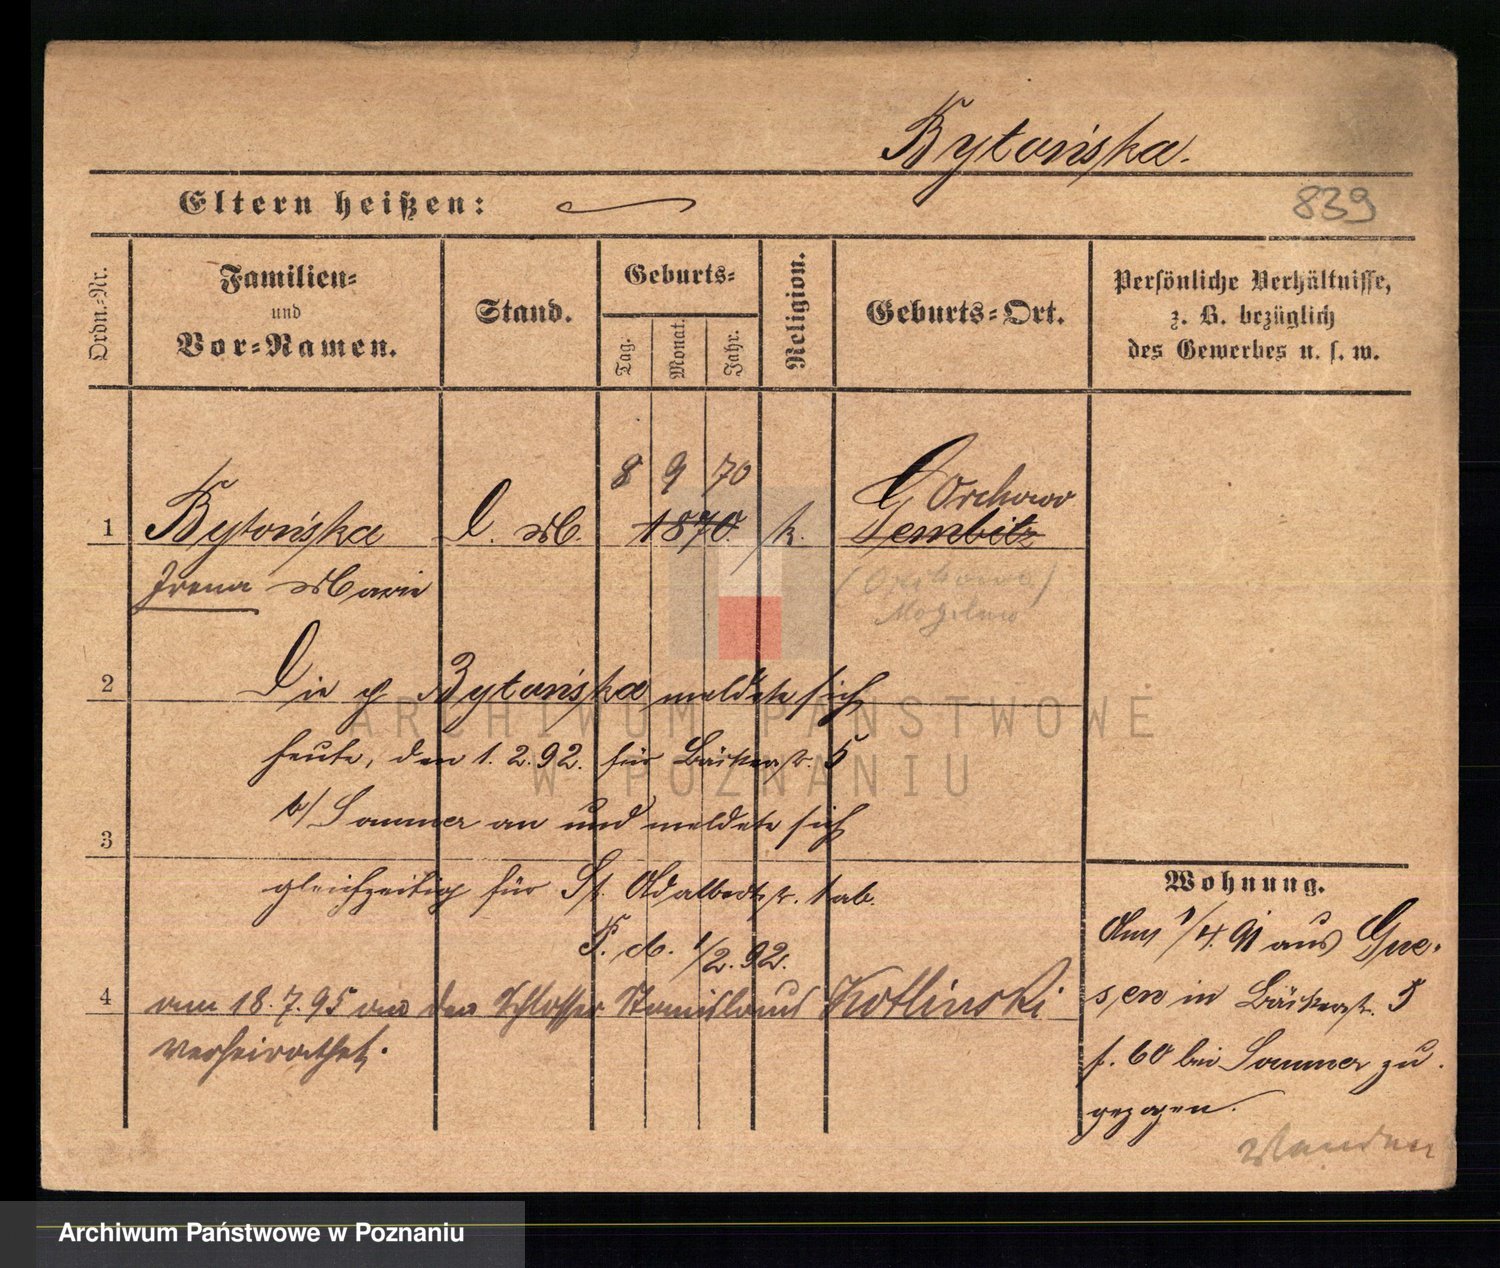 Bytońska.
Eltern heißen:
839
Ordn.-Nr.
Familien-
und
Vor-Namen.
Stand.
Geburts-
Tag.
Monat.
Jahr.
Religion.
Geburts-Ort.
Persönliche Verhältnisse,
z. B. bezüglich
des Gewerbes u. s. w.
8 9 70
Orchowo
1 Bytońska D. M. 1870 k. Gembitz
Irena Marie
(Orchowo)
Mogilno
2 Die p Bytońska meldete sich
heute, den 1. 2. 92. für Bäckerstr. 5
b/ Sommer an und meldete sich
3
gleichzeitig für St. Adalbertstr. 1 ab.
P. A. 1/2. 92.
4 am 18. 7. 95 an den Schlosser Stanislaus Kotlinski
verheirathet.
Wohnung.
Am 1/4. 91 aus Gne-
sen in Bäckerstr. 5
b. bei Sommer zu
gezogen.
ARCHIWUM PAŃSTWOWE
W POZNANIU
Archiwum Państwowe w Poznaniu